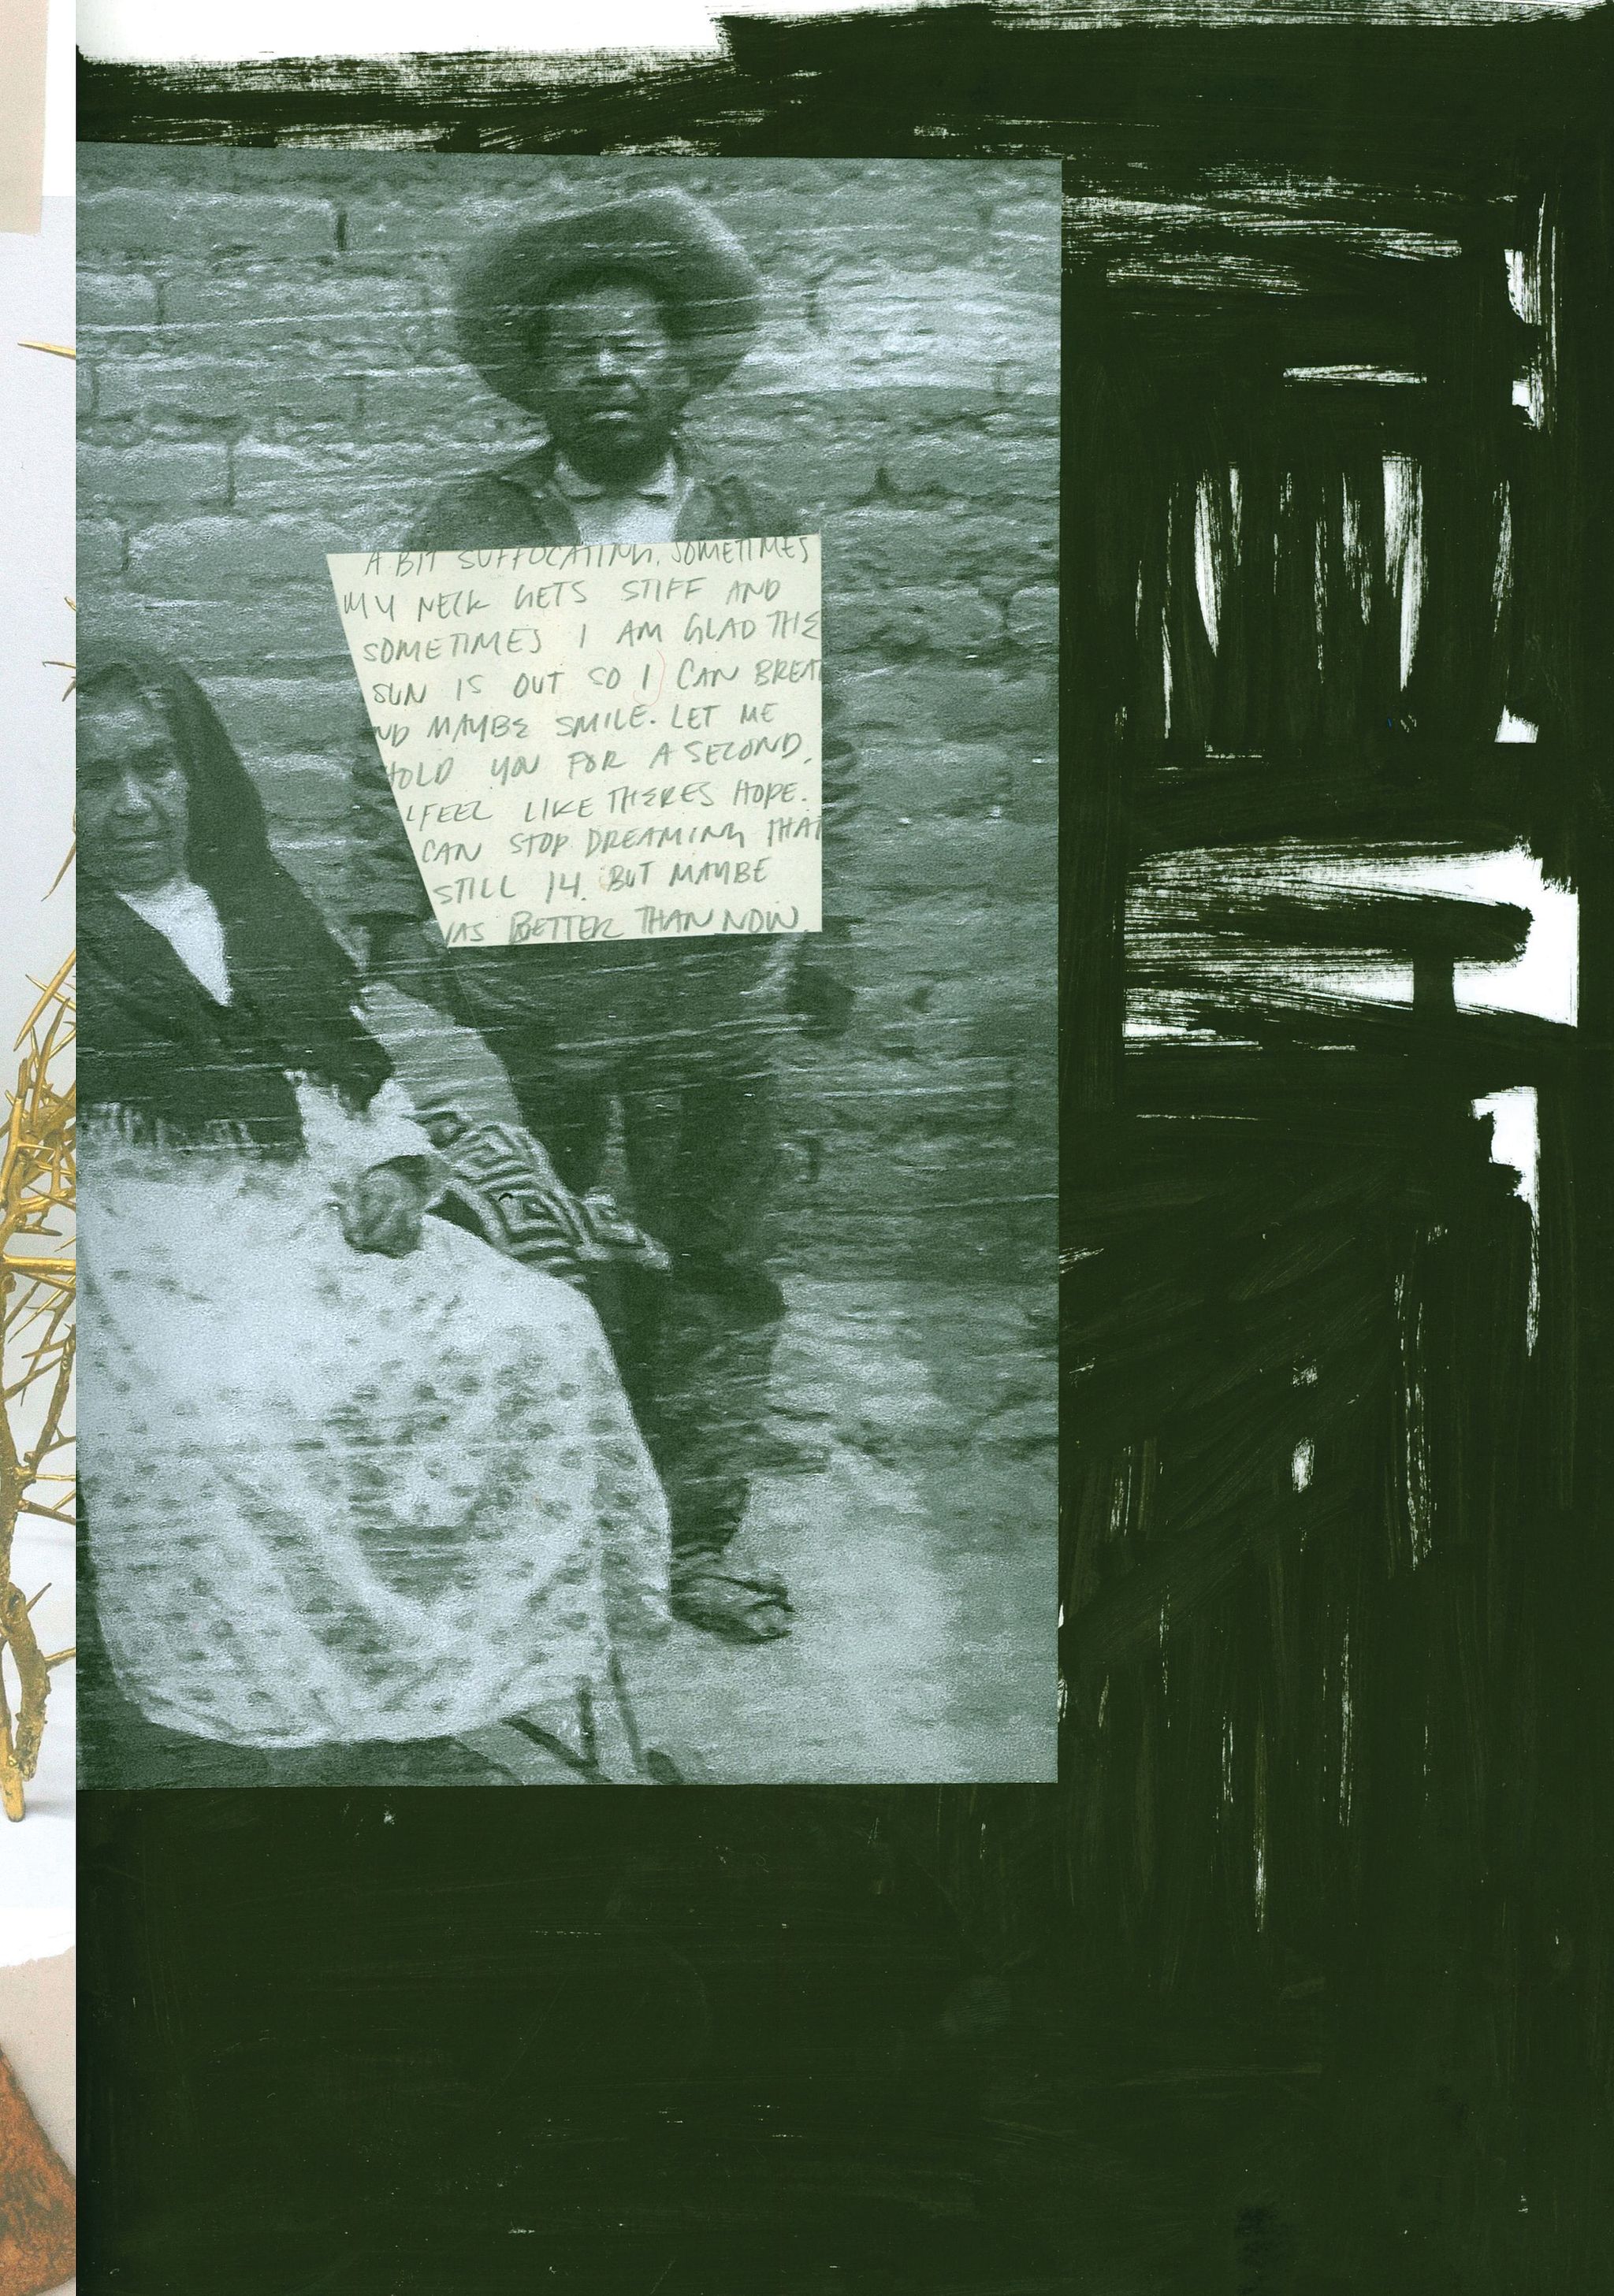 A BIT SUFFOCATING. SOMETIMES
MY NECK GETS STIFF AND
SOMETIMES I AM GLAD THE
SUN IS OUT SO I CAN BREAT
ND MAYBE SMILE. LET ME
HOLD YOU FOR A SECOND.
I FEEL LIKE THERES HOPE.
CAN STOP DREAMING THAT
STILL 14. BUT MAYBE
WAS BETTER THAN NOW.